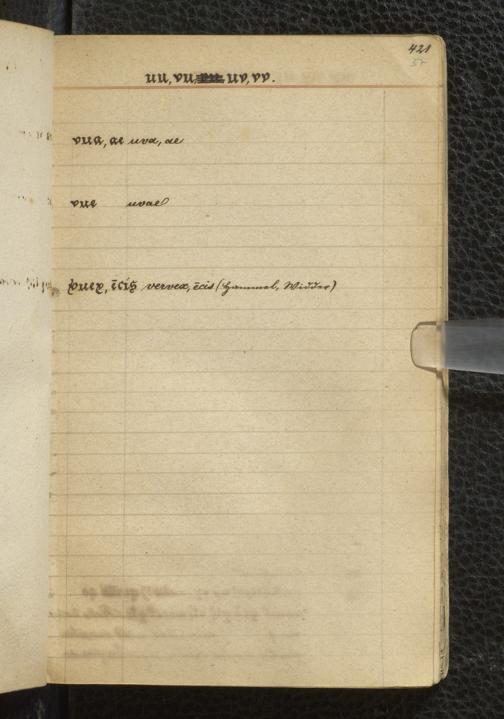 421
uu, vu, uv, vv.
vua, ae uva, ae
vue uvae
vuex, ēcis vervex, ēcis (Hammel, Widder)